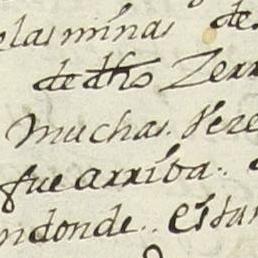 elas minas de
de dho Zerr
muchas. vere
fue arriba..
ndonde.. estan